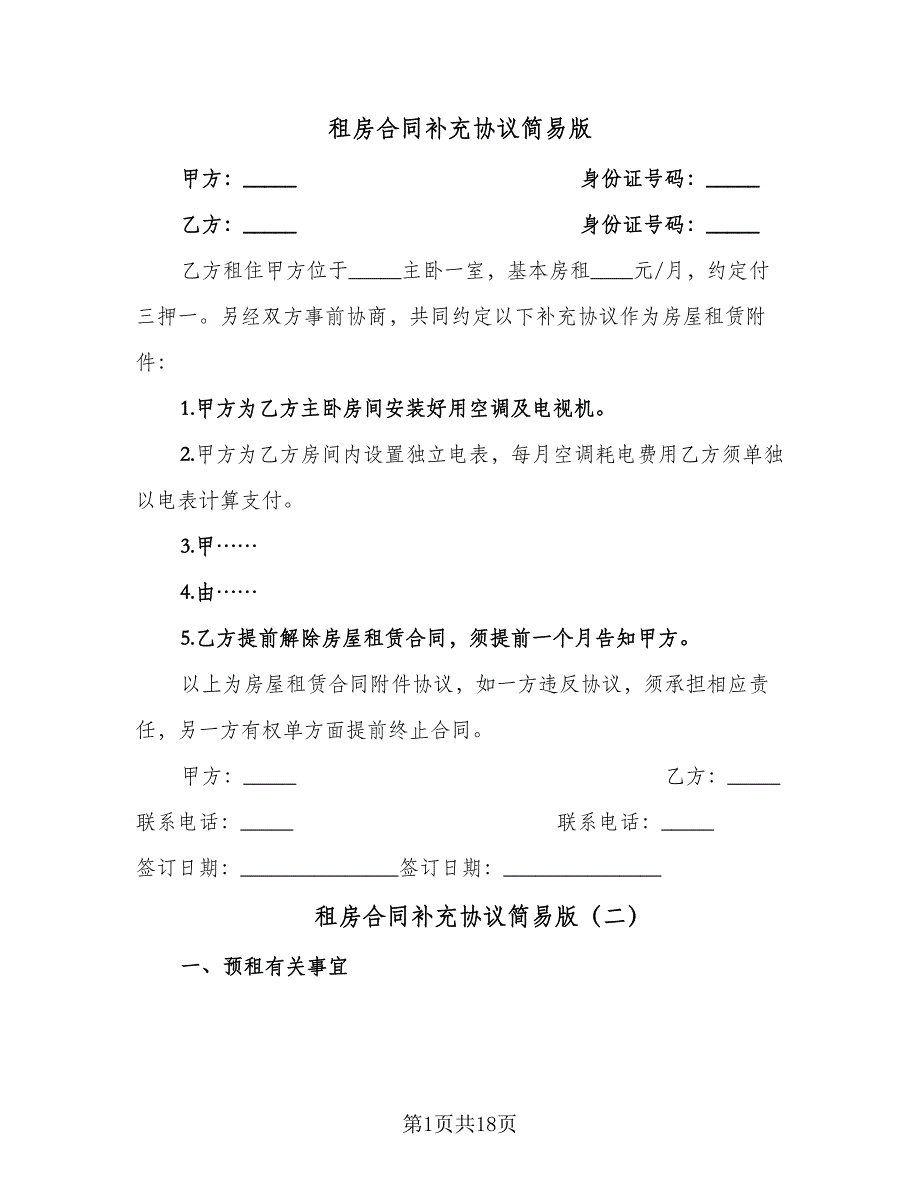 租房合同补充协议简易版
甲方：_____ 身份证号码：_____
乙方：_____ 身份证号码：_____
乙方租住甲方位于_____主卧一室，基本房租____元/月，约定付
三押一。另经双方事前协商，共同约定以下补充协议作为房屋租赁附
件：
1.甲方为乙方主卧房间安装好用空调及电视机。
2.甲方为乙方房间内设置独立电表，每月空调耗电费用乙方须单独
以电表计算支付。
3.甲……
4.由……
5.乙方提前解除房屋租赁合同，须提前一个月告知甲方。
以上为房屋租赁合同附件协议，如一方违反协议，须承担相应责
任，另一方有权单方面提前终止合同。
甲方：_____ 乙方：_____
联系电话：_____ 联系电话：_____
签订日期：_______________签订日期：_______________
租房合同补充协议简易版（二）
一、预租有关事宜
第1页共18页